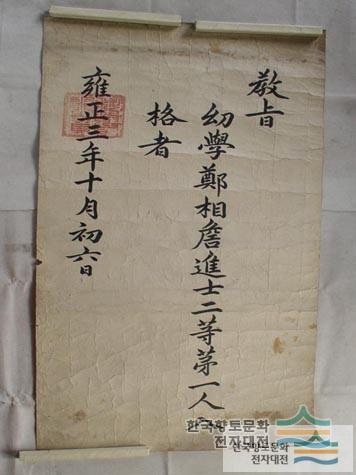 教旨
幼學鄭相詹進士二等第一人
格者
雍正三年十月初六日
한국향토문화
전자대전
한국향토문화
전자대전